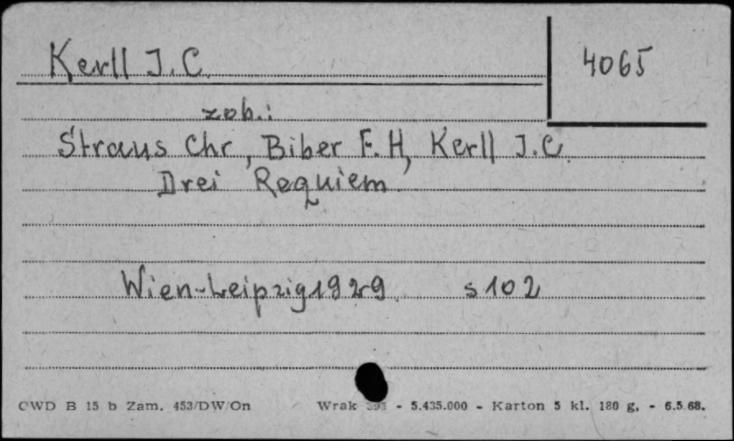 Kerll J. C.
4065
zob.:
Straus Chr, Biber F. H, Kerll J. C.
Drei Requiem.
Wien-Leipzig 1929 s 102
CWD B 15 b Zam. 453/DW/On Wrak - 5.435.000 - Karton 5 kl. 180 g. - 6.5.68.